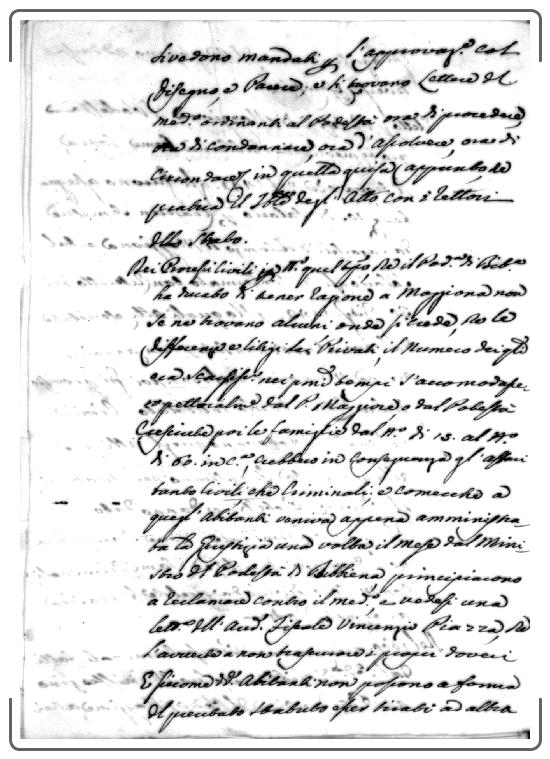 si vedono mandati p l'approvaz.e col
disegno e Parere, e si trovano Lettere del
med.o ordinanti al Podestà ora di procedere,
ora di condannare, ora d'assolvere, ora di
in quella guisa appunto che
pratica il degl' Otto con i Rettori
dello Stato.
Nei Processi Civili p quel tpo che il Pod.à di Bib.a
ha dovuto tener ragione a Moggiona non
se ne trovano alcuni onde si crede, che le
differenze e litigi dei Privati, il Numero dei quali
era nei primi tempi s'accomodasse
dal P. Maggiore o dal Potestà
Cresciute poi le famiglie dal N.o di 15. al N.o
di 60. in c.a, crebbero in conseguenza gl' affari
tanto Civili che Criminali, e comecche a
quegl' Abitanti veniva appena amministra
ta la Giustizia una volta il mese dal Mini
stro del Podestà di Bibbiena principiarono
a reclamare contro il med.o, e vedesi una
lett.a dell' Aud. Fiscale Vincenzio Piazza, che
l'avverte a non trascurare i propri doveri
E siccome d.i Abitanti non possono a forma
del precitato Statuto esser tirati ad altra